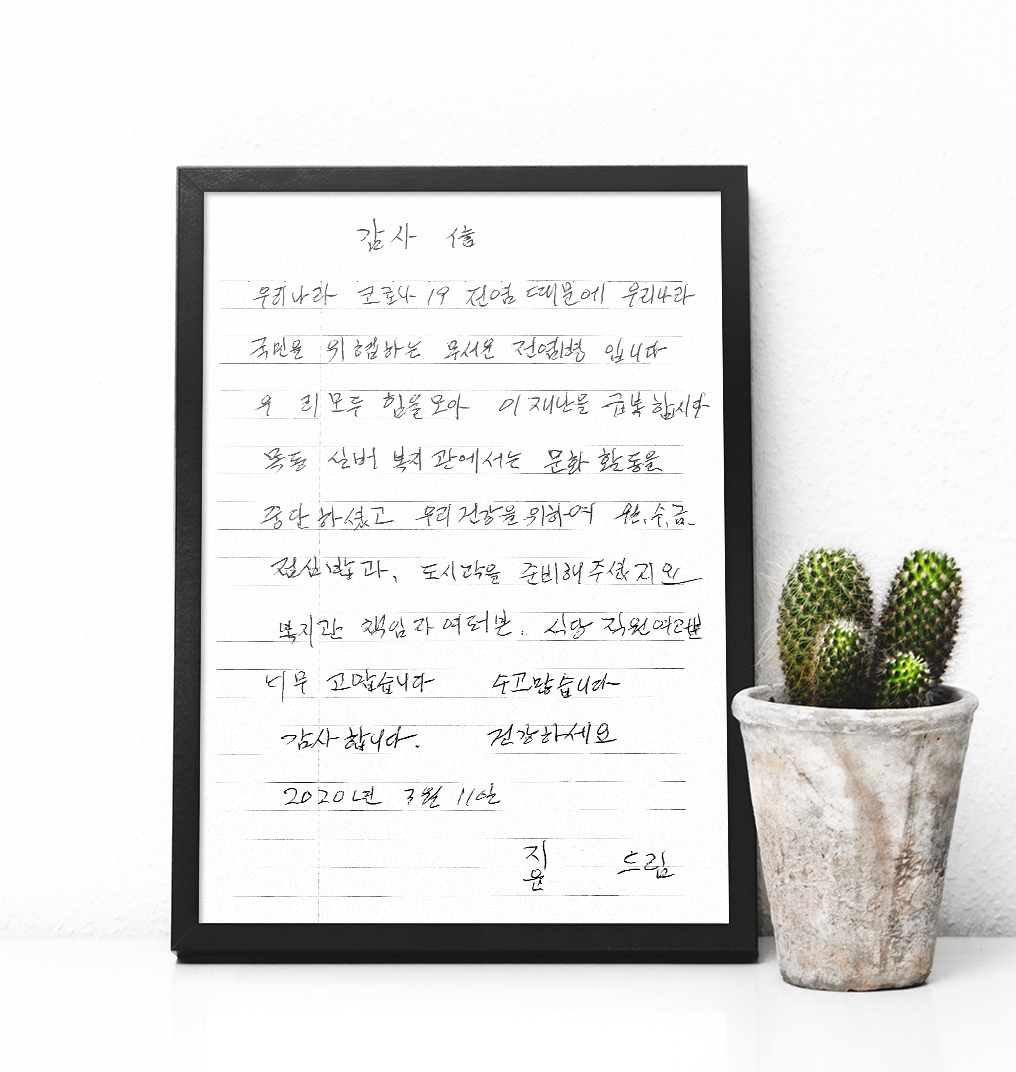 감사 信
우리나라 코로나 19 전염 때문에 우리나라
국민을 위협하는 무서운 전염병 입니다
우리 모두 힘을모아 이 재난을 극복합시다
목동 실버 복지관에서는 문화 활동을
중단하셨고 우리 건강을 위하여 월,수,금.
점심밥과, 도시락을 준비해주셨지요
복지관 책임자 여러분. 식당 직원여러분
너무 고맙습니다 수고많습니다
감사합니다. 건강하세요
2020년 3월 11일
지윤 드림